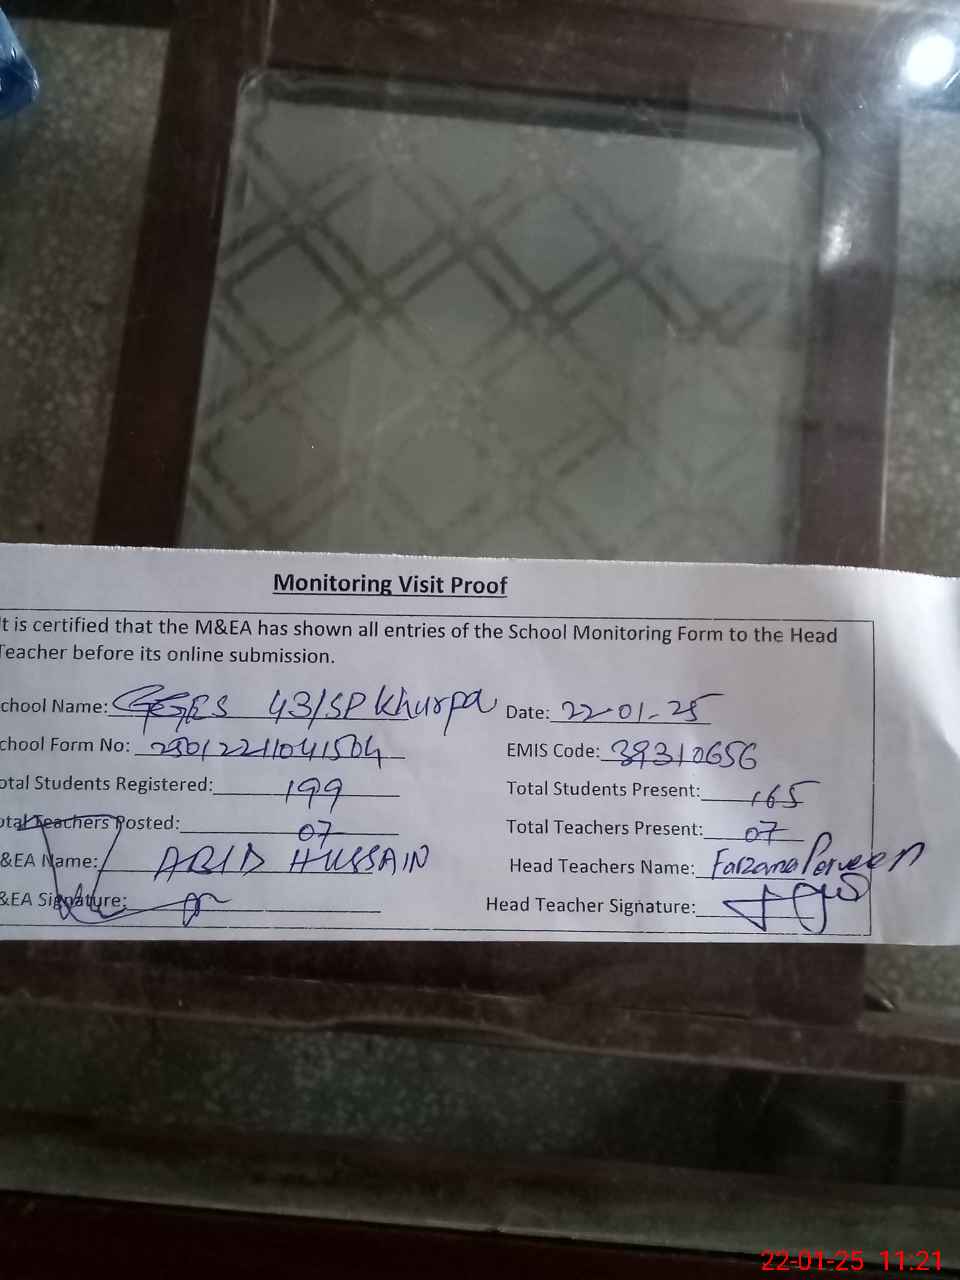 Monitoring Visit Proof
t is certified that the M&EA has shown all entries of the School Monitoring Form to the Head
Teacher before its online submission.
chool Name: GGES 43/SP Khurpa Date: 22-01-25
chool Form No: 25012211041504 EMIS Code: 39310656
otal Students Registered: 199 Total Students Present: 165
otal Teachers Posted: 07 Total Teachers Present: 07
&EA Name: ABID HUSSAIN Head Teachers Name: Farzana Parveen
&EA Signature: Head Teacher Signature:
22-01-25 11:21